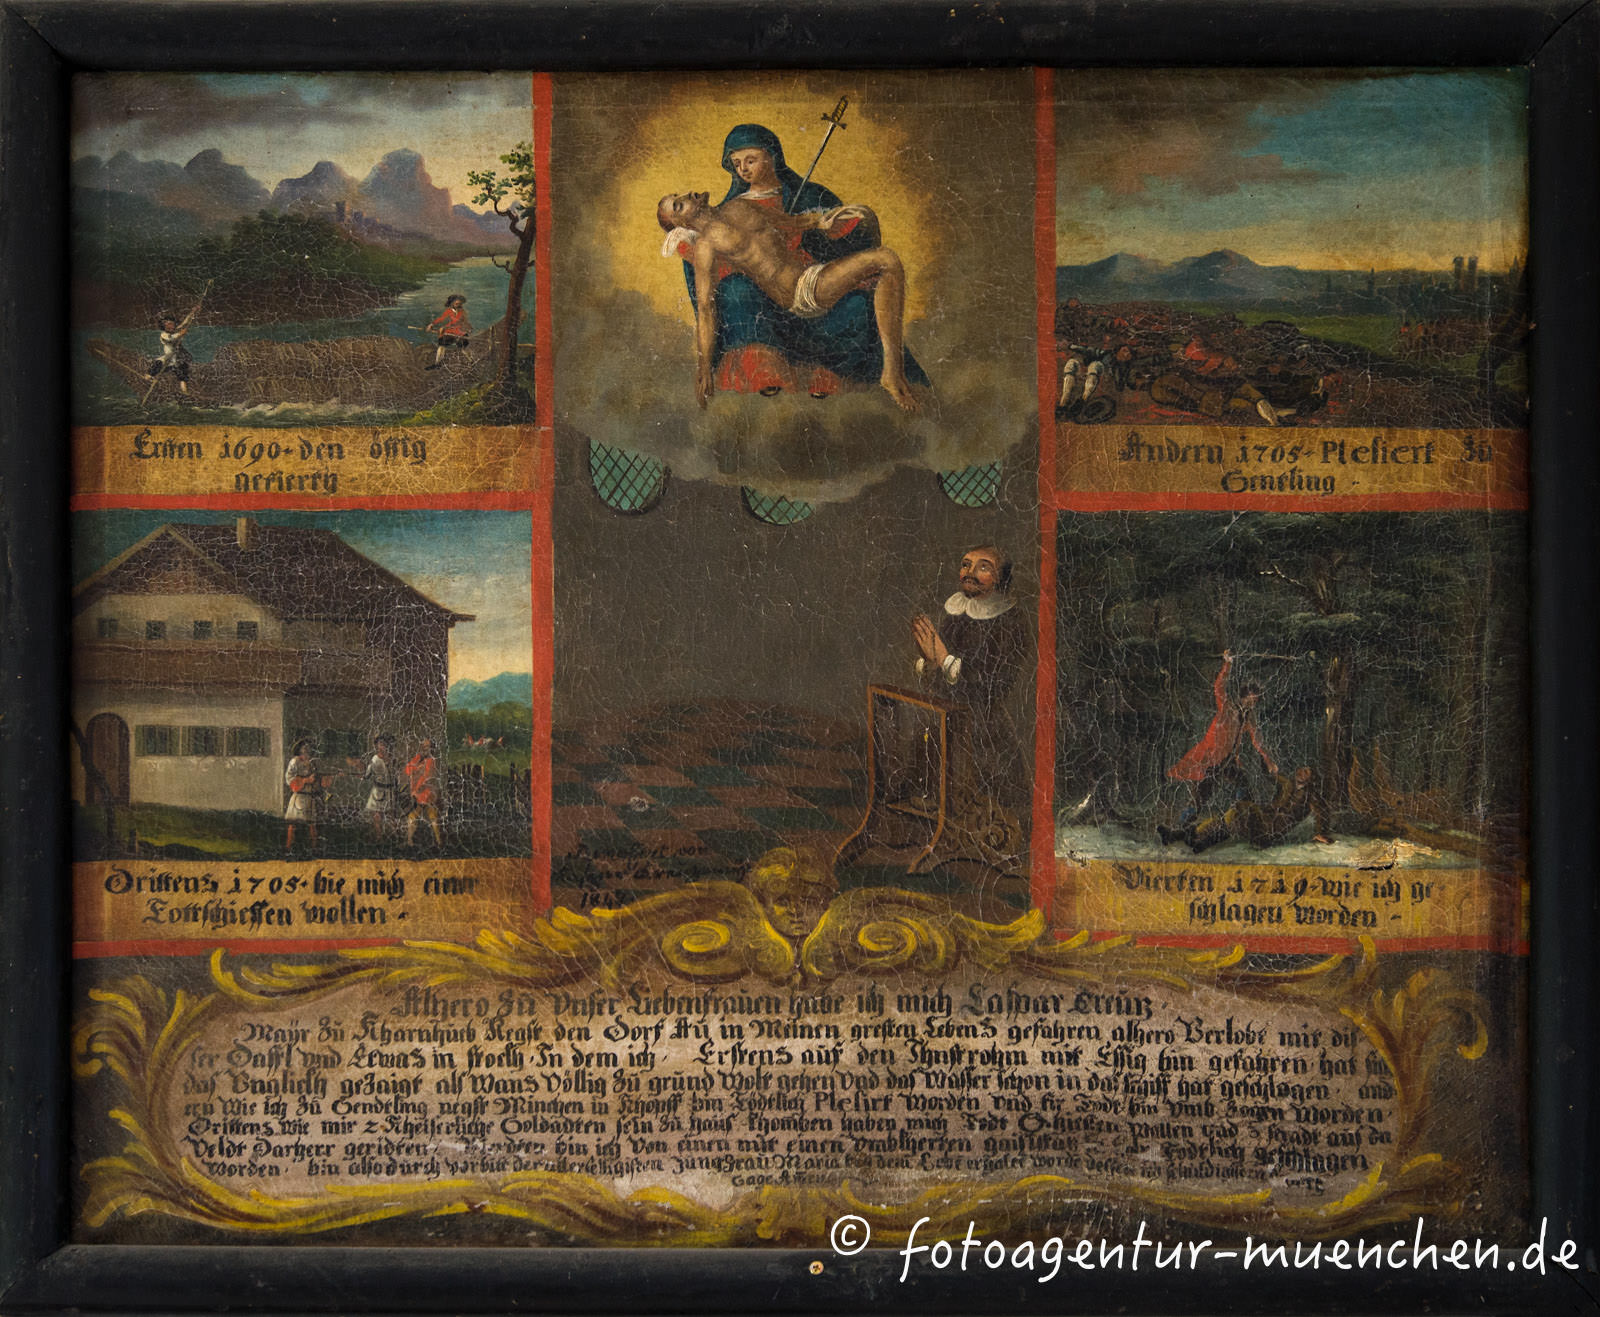 Ersten 1690. den össig
gefierth
Andern 1705. Plesiert Zu
Sentling.
Drittens 1705. hie mich einer
Tottschiessen wollen.
Vierten 1719. wie ich ge
schlagen worden.
von
184
Alhero Zu Unser Liebenfrauen habe ich mich Caspar Creuz.
Mayr Zu Kharnhueb Negst den Dorf Au in Meinen gresten Lebens gefahren alhero Verlobt mit dis
ser Daffl und Etwas in stockh. In dem ich. Erstens auf den Ihnstrohm mit Essig bin gefahren hat sich
das Unglickh geZaigt als Wans Völlig Zu grund Wolt gehen und das Wasser schon in das schiff hat geschlagen. and
ern Wie ich Zu Sendtling negst Minchen in Khopff bin Tödtlich Plesirt Worden und fir Todt bin Umb Zogen Worden.
Drittens Wie mir 2 Kheiserliche Soldadten sein Zu haus Khomben haben mich Todt Schiessen Wollen und
Veldt Darherr geridten. bin ich Von einen mit einen Tödtlich geschlagen
worden. bin also durch vorbitt der allerselligisten Jungfrau Maria
© fotoagentur-muenchen.de